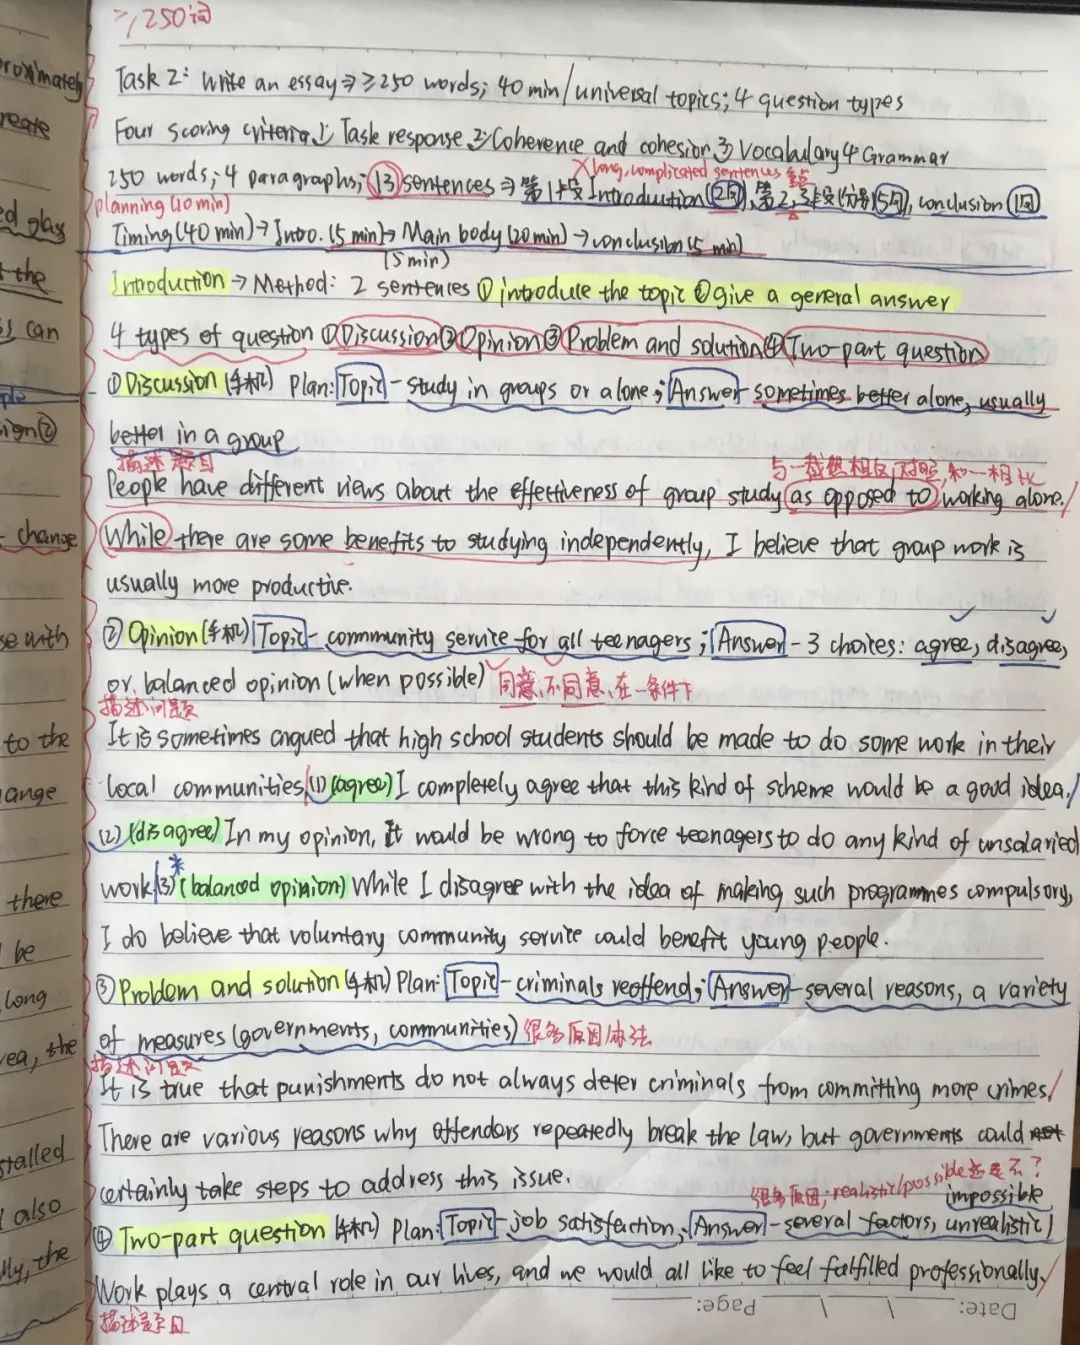 ≥250词
Task 2: Write an essay ⇒ ≥250 words; 40 min/universal topics; 4 question types
Four scoring criteria 1: Task response 2: Coherence and cohesion 3) Vocabulary 4: Grammar
X long, complicated sentences
250 words; 4 paragraphs; 13 sentences ⇒ 第1段 Introduction (2句), 第2,3段(分别5句), conclusion (1句)
planning (10 min)
Timing (40 min) → Intro. (5 min) → Main body (20 min) → conclusion (5 min)
(5 min)
Introduction → Method: 2 sentences ① introduce the topic ② give a general answer
4 types of question ① Discussion ② Opinion ③ Problem and solution ④ Two-part question
① Discussion (手机) Plan: Topic - study in groups or alone; Answer - sometimes better alone, usually
better in a group
描述题目 与一截然相反,对照,和一相比
People have different views about the effectiveness of group study as opposed to working alone./
While there are some benefits to studying independently, I believe that group work is
usually more productive.
② Opinion (手机) Topic - community service for all teenagers; Answer - 3 choices: agree, disagree,
or balanced opinion (when possible) 同意、不同意、在一条件下
描述问题
It is sometimes argued that high school students should be made to do some work in their
local communities./(1) (agree) I completely agree that this kind of scheme would be a good idea./
(2) (disagree) In my opinion, it would be wrong to force teenagers to do any kind of unsalaried
work/(3)* (balanced opinion) While I disagree with the idea of making such programmes compulsory,
I do believe that voluntary community service could benefit young people.
③ Problem and solution (手机) Plan: Topic - criminals reoffend; Answer - several reasons, a variety
of measures (governments, communities) 很多原因/办法
描述问题
It is true that punishments do not always deter criminals from committing more crimes./
There are various reasons why offenders repeatedly break the law, but governments could not
certainly take steps to address this issue.
很多原因; realistic/possible还是不?
impossible
④ Two-part question (手机) Plan: Topic - job satisfaction; Answer - several factors, unrealistic)
Work plays a central role in our lives, and we would all like to feel fulfilled professionally./
描述题目
Date: Page:
roximately
reate
ed
t the
can
sign ②
change
se with
to the
ange
there
be
long
rea, the
stalled
also
lly, the